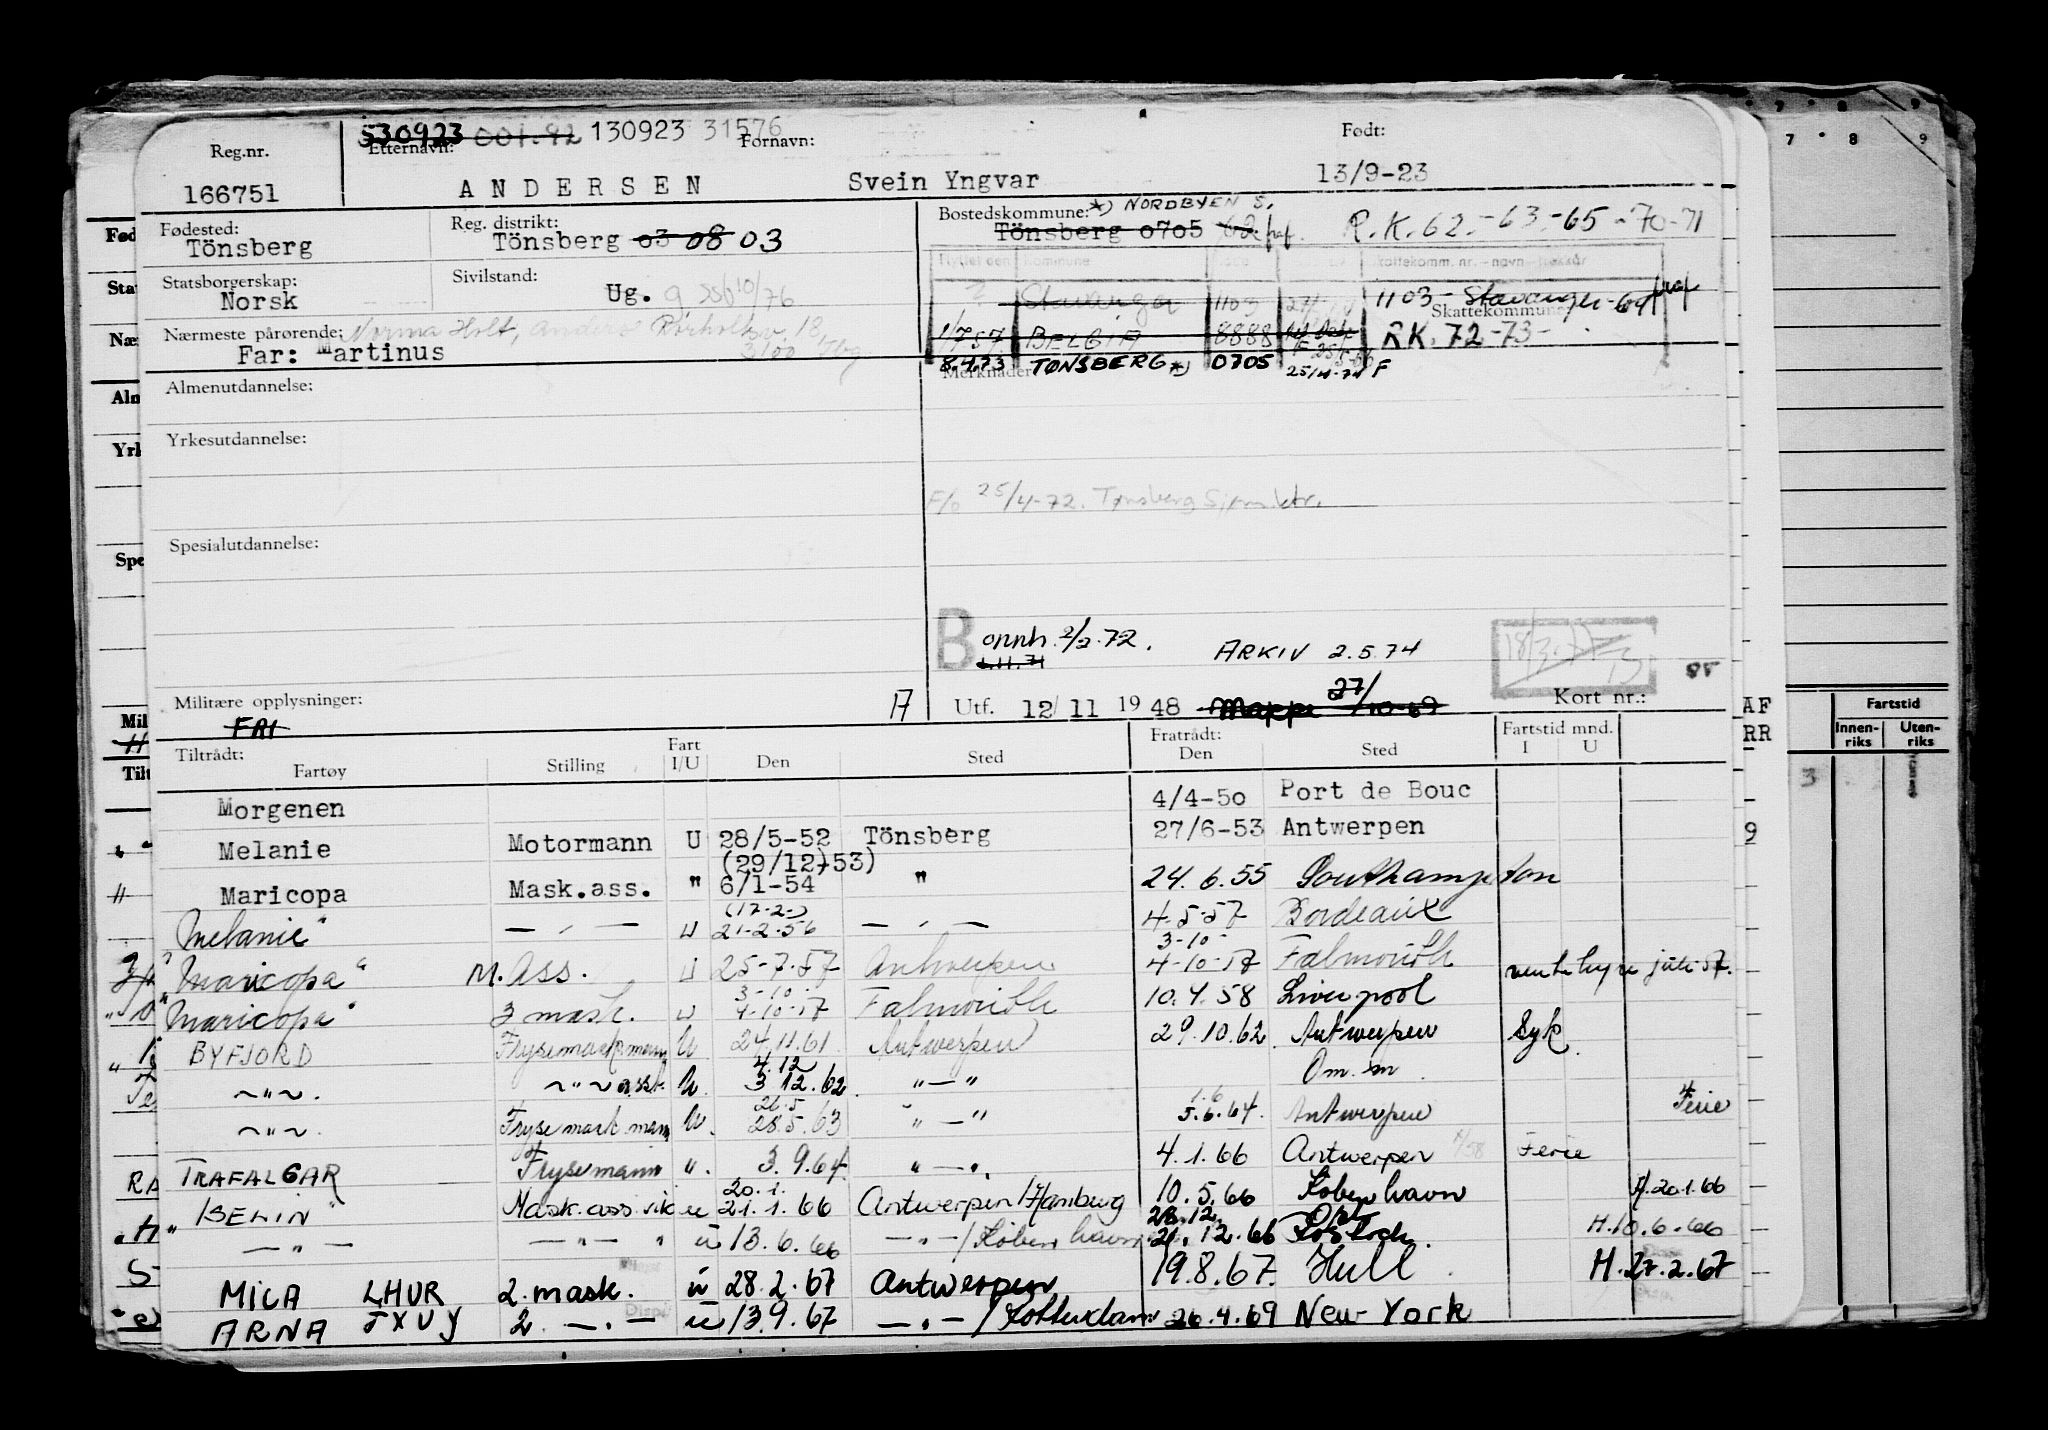 S30923 001.92 130923 31576
Reg.nr. Etternavn: Fornavn: Født:
166751 ANDERSEN Svein Yngvar 13/9-23
Fødested: Tönsberg
Reg. distrikt: Tönsberg 03 08 03
Bostedskommune: *) NORDBYEN 5.
Tönsberg 0705 R.K. 62.-63-65-70-71
Statsborgerskap: Norsk
Sivilstand: Ug.
Flyttet den Kommune Skattekomm. nr. - navn
Stavanger 1103 1103 - Stavanger - 69
Skattekommune
Nærmeste pårørende: Norma Holt,
Far: Martinus
1/7 57 BELGIA 8888 RK. 72-73-
8.4.73 TØNSBERG *) 0705 25/4-74 F
Merknader
Almenutdannelse:
Yrkesutdannelse:
F/o 25/4-72. Tønsberg Sjøm.ktr.
Spesialutdannelse:
B onnh. 2/2.72. ARKIV 2.5.74
1.11.71
Militære opplysninger: A Utf. 12/11 1948 Mappe 27/10-69 Kort nr.:
FRI
Tiltrådt: Fartøy Stilling Fart I/U Den Sted Fratrådt: Den Sted Fartstid mnd. I U
Morgenen 4/4-50 Port de Bouc
Melanie Motormann U 28/5-52 Tönsberg 27/6-53 Antwerpen
(29/12-53)
Maricopa Mask.ass. " 6/1-54 " 24.6.55 Southampton
(17-2-)
Melanie" — " — U 21-2-56 — " — 4-5-57 Bordeaux
3-10-
"Maricopa" M. Ass. U 25-7-57 Antwerpen 4-10-57 Falmouth
3-10-
"Maricopa" 3 mask. u 4-10-57 Falmouth 10.4.58 Liverpool
BYFJORD Frysemask.mann U 24.11.61 Antwerpen 29.10.62 Antwerpen Syk.
4.12
~"~. ~"~ assk. U. 3.12.62. "—" Om. m
26.5 1.6
~"~. Fryse mask mann U. 28.5.63 "—" 5.6.64. Antwerpen Ferie
TRAFALGAR Frysemann ". 3.9.64. "—". 4.1.66 Antwerpen Ferie
20.1.
"ISELIN" Mask.ass. vik u 21.1.66 Antwerpen/Hamburg 10.5.66 København H. 20.1.66
28.12.
—"— —"— " u 13.6.66 —"—/København 21.12.66 H. 10.6.66
MICA LHUR 2. mask. u 28.2.67 Antwerpen 19.8.67. Hull H. 27.2.67
ARNA JXUY 2. —.— u 13.9.67 —"—/Rotterdam 26.4.69 New-York
7 8 9
7 8 9
AF
RR
Fartstid
Innenriks Utenriks
3
9